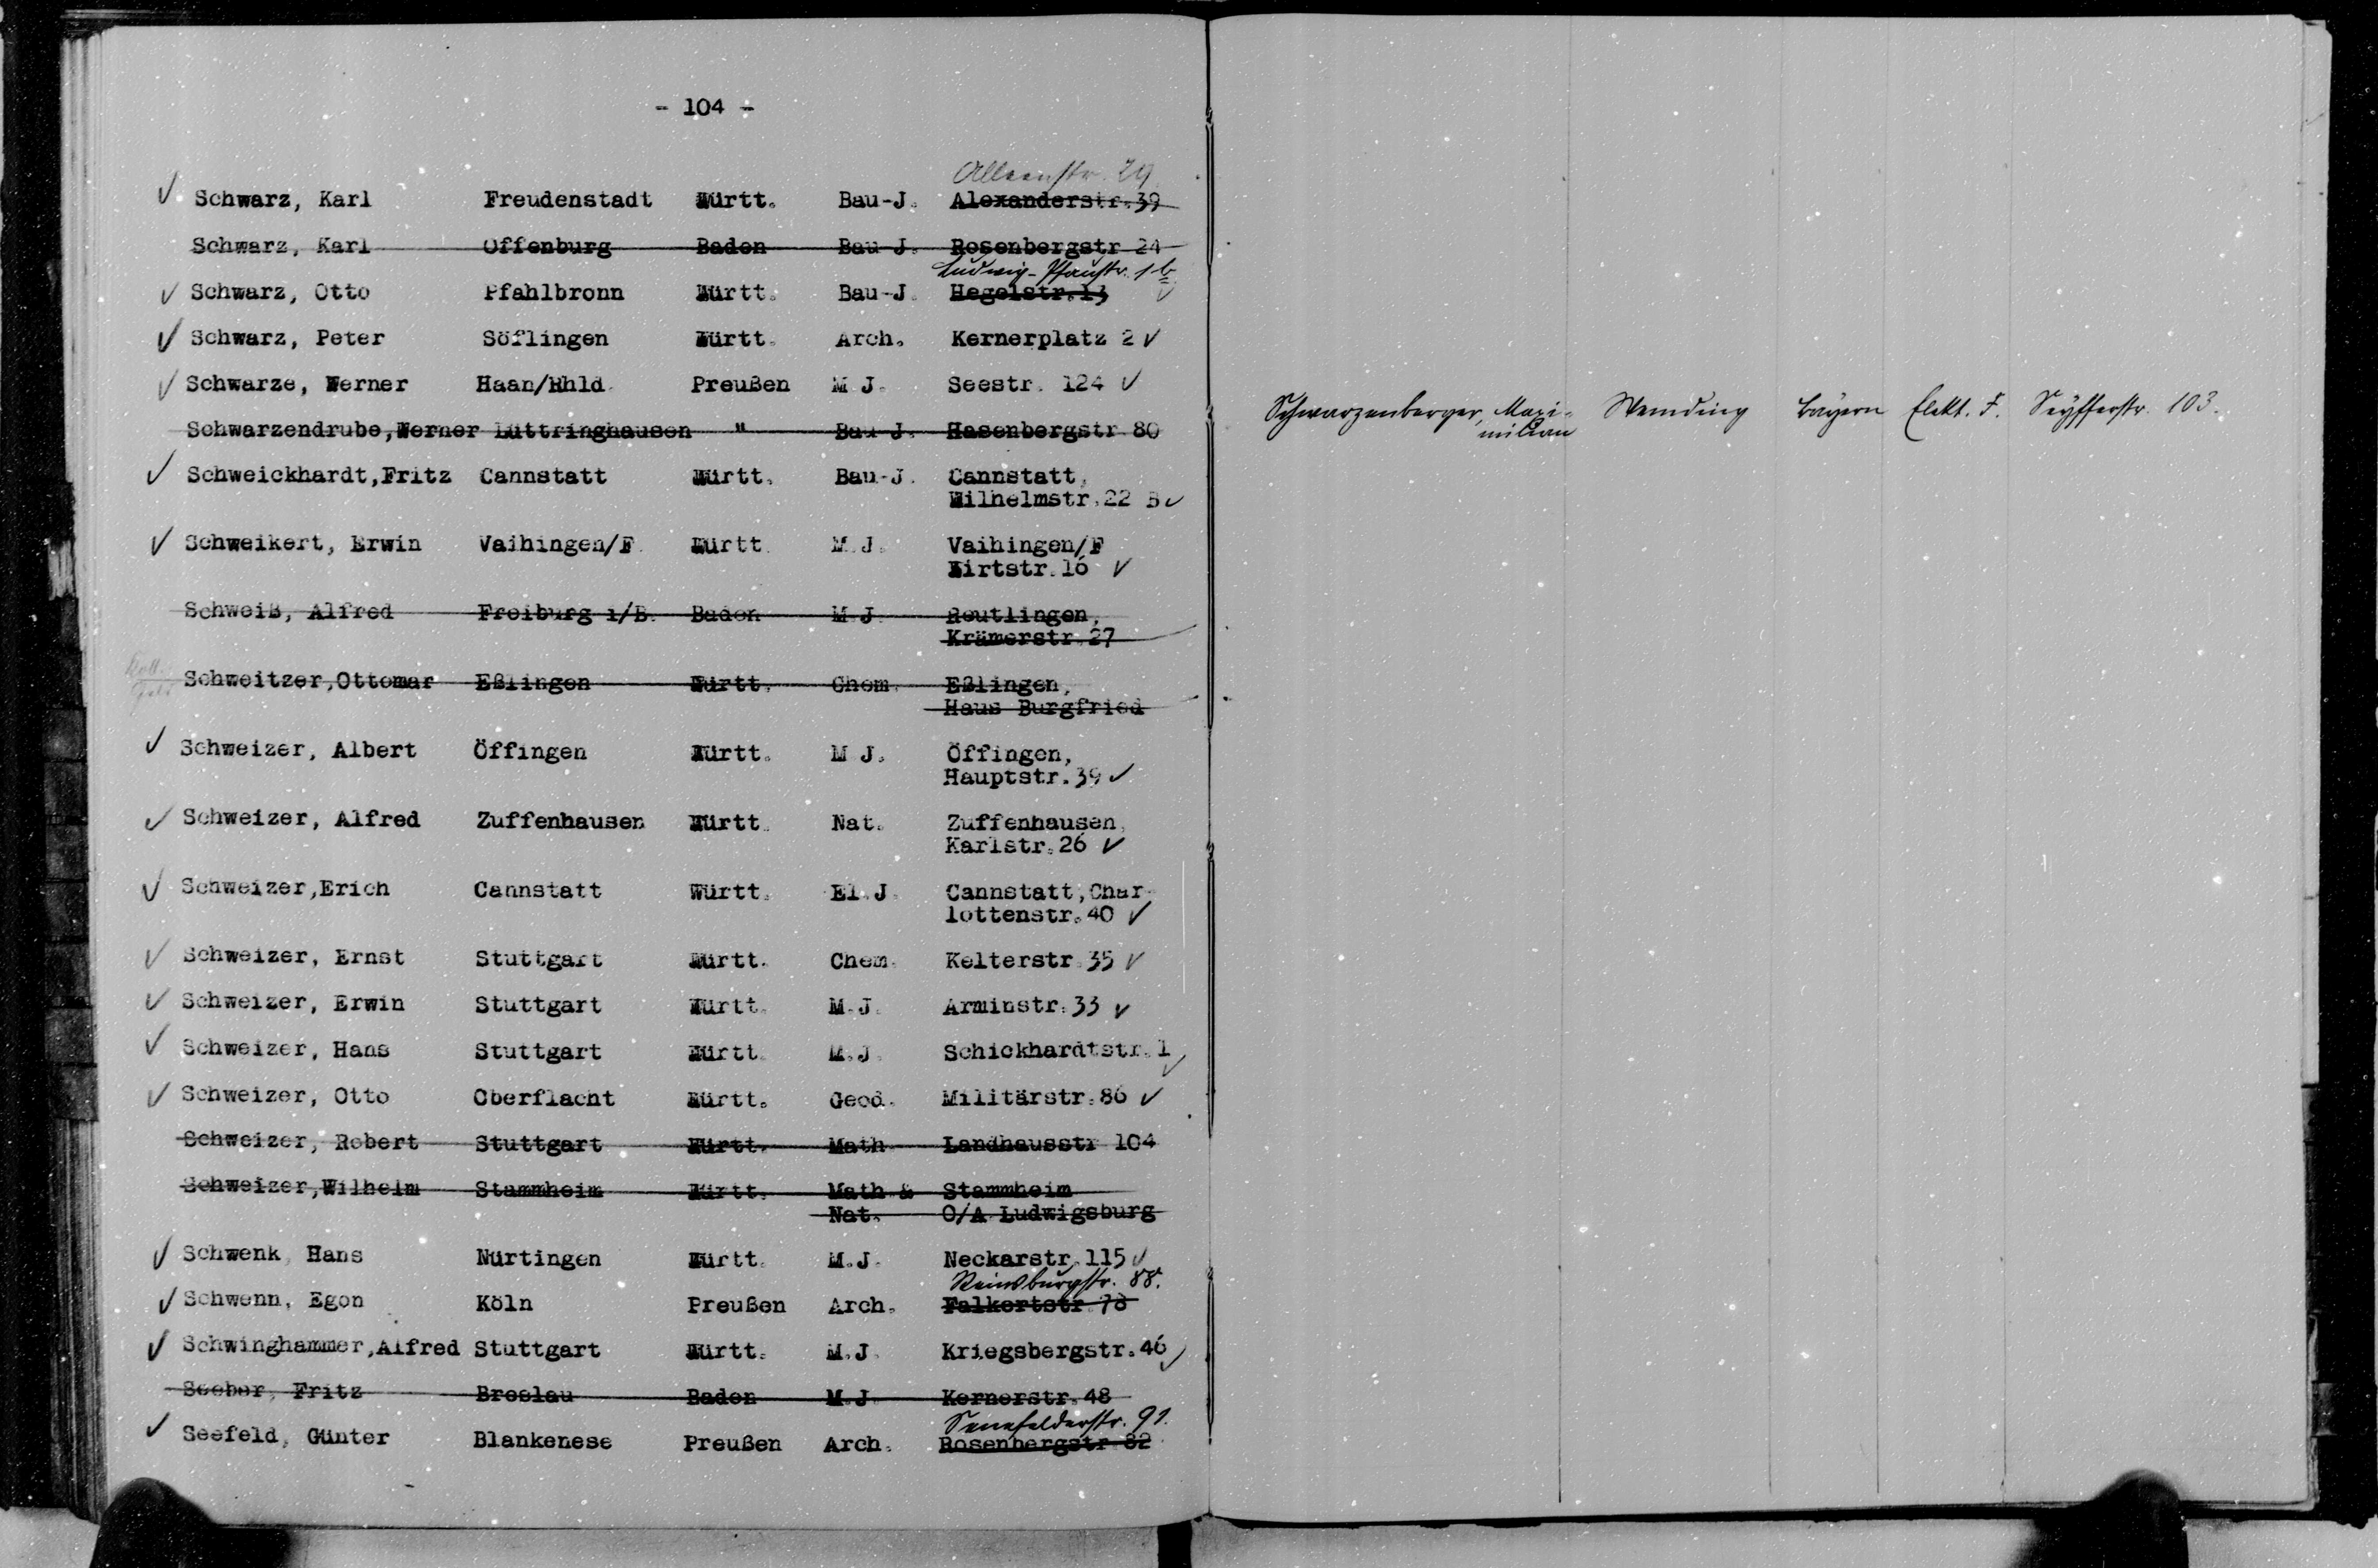 - 104 -
Alleenstr. 29
✓ Schwarz, Karl Freudenstadt Württ. Bau-J. Alexanderstr.39
Schwarz, Karl Offenburg Baden Bau-J. Rosenbergstr 24
Ludwig-Pfaustr. 1b
✓ Schwarz, Otto Pfahlbronn Württ. Bau-J. Hegelstr.13 ✓
✓ Schwarz, Peter Söflingen Württ. Arch. Kernerplatz 2 ✓
✓ Schwarze, Werner Haan/Rhld. Preußen M.J. Seestr. 124 ✓
Schwarzendrube,Werner Lüttringhausen " Bau-J. Hasenbergstr.80
✓ Schweickhardt,Fritz Cannstatt Württ. Bau-J. Cannstatt,
Wilhelmstr.22 B ✓
✓ Schweikert, Erwin Vaihingen/F. Württ. M.J. Vaihingen/F
Wirtstr.16 ✓
Schweiß, Alfred Freiburg i/B. Baden M.J. Reutlingen,
Krämerstr.27
Schweitzer,Ottomar Eßlingen Württ. Chem. Eßlingen,
Haus Burgfried
✓ Schweizer, Albert Öffingen Württ. M.J. Öffingen,
Hauptstr.39 ✓
✓ Schweizer, Alfred Zuffenhausen Württ. Nat. Zuffenhausen,
Karlstr.26 ✓
✓ Schweizer,Erich Cannstatt Württ. El.J. Cannstatt,Char-
lottenstr.40 ✓
✓ Schweizer, Ernst Stuttgart Württ. Chem. Kelterstr.35 ✓
✓ Schweizer, Erwin Stuttgart Württ. M.J. Arminstr.33 ✓
✓ Schweizer, Hans Stuttgart Württ. M.J. Schickhardtstr.1 ✓
✓ Schweizer, Otto Oberflacht Württ. Geod. Militärstr.86 ✓
Schweizer, Robert Stuttgart Württ. Math Landhausstr 104
Schweizer,Wilhelm Stammheim Württ. Math.& Stammheim
Nat. O/A Ludwigsburg
✓ Schwenk, Hans Nürtingen Württ. M.J. Neckarstr.115 ✓
Reinsburgstr. 88.
✓ Schwenn, Egon Köln Preußen Arch. Falkertstr.78
✓ Schwinghammer,Alfred Stuttgart Württ. M.J. Kriegsbergstr.46 ✓
Seeber, Fritz Breslau Baden M.J. Kernerstr.48
Senefelderstr. 91.
✓ Seefeld, Günter Blankenese Preußen Arch. Rosenbergstr 82
Schwarzenberger, Maxi- Wemding Bayern Elekt. J. Seyfferstr. 103.
milian